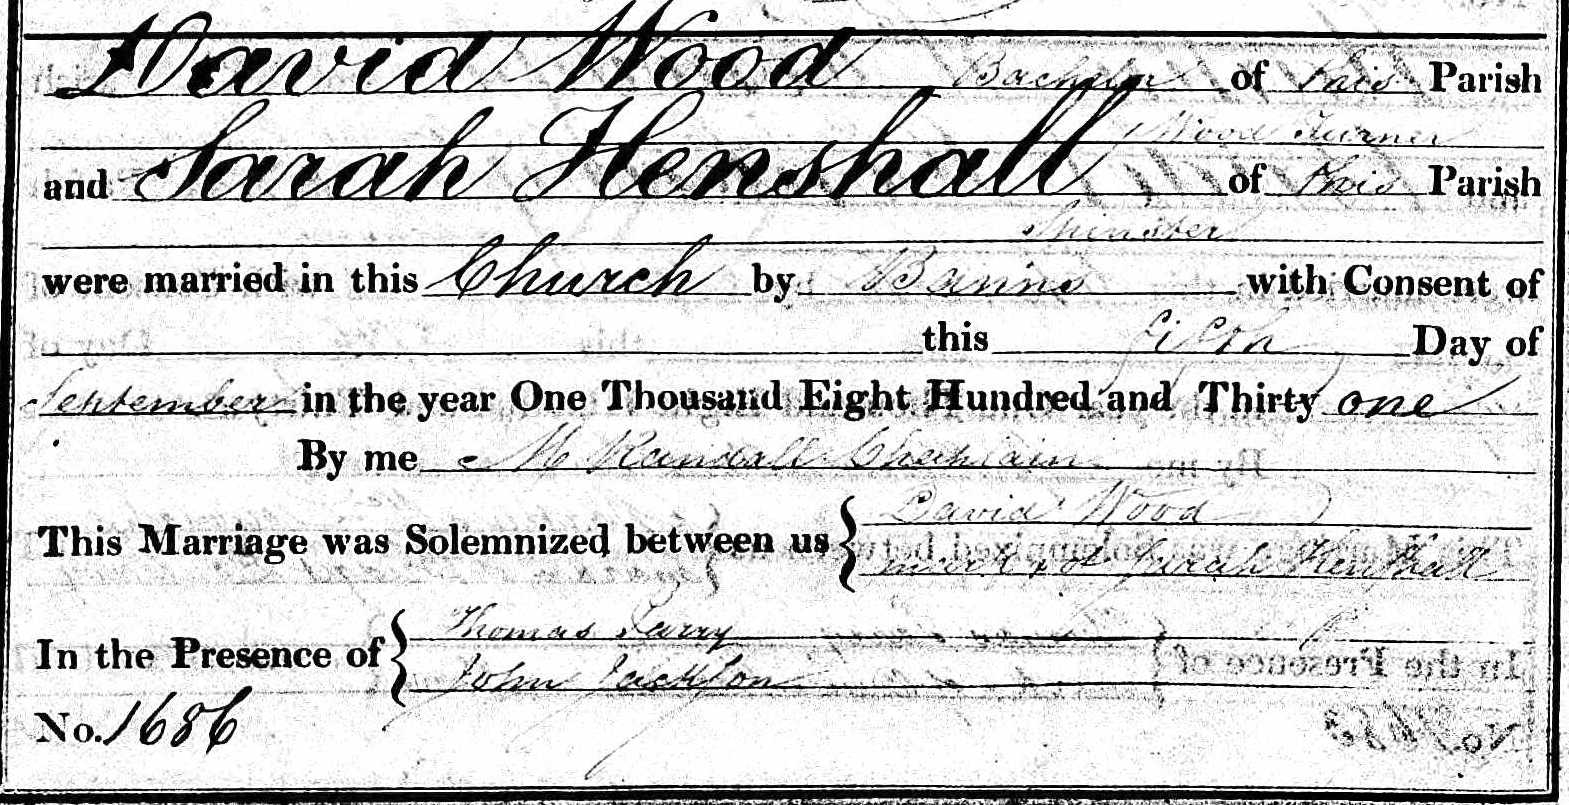 David Wood Bachelor of this Parish
Wood Turner
and Sarah Henshall of this Parish
Spinster
were married in this Church by Banns with Consent of
this fifth Day of
September in the year One Thousand Eight Hundred and Thirty one
By me M Randall Chaplain
This Marriage was Solemnized between us { David Wood
mark x of Sarah Henshall
In the Presence of { Thomas
John Jackson
No. 1686